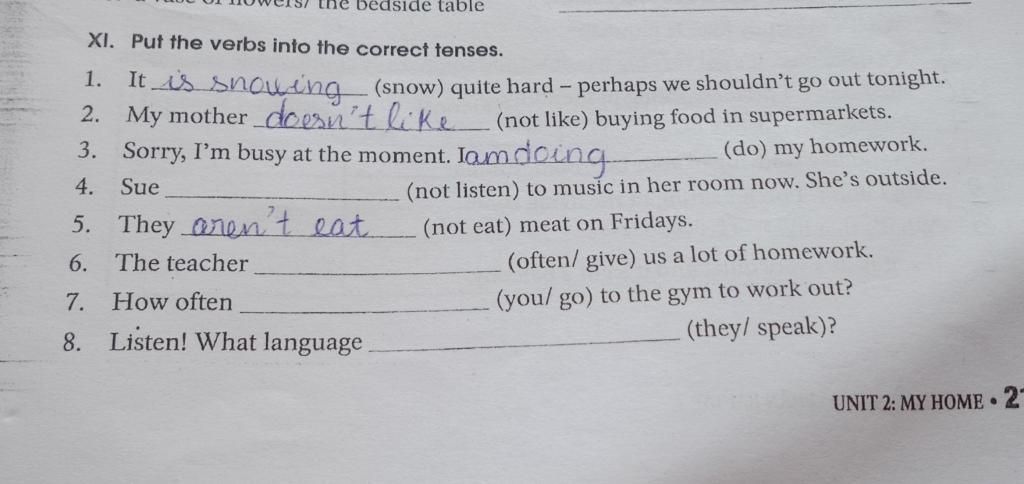 the bedside table
XI. Put the verbs into the correct tenses.
1. It is snowing (snow) quite hard – perhaps we shouldn't go out tonight.
2. My mother doesn't like (not like) buying food in supermarkets.
3. Sorry, I'm busy at the moment. I am doing (do) my homework.
4. Sue ____________ (not listen) to music in her room now. She's outside.
5. They aren't eat (not eat) meat on Fridays.
6. The teacher ____________ (often/ give) us a lot of homework.
7. How often ____________ (you/ go) to the gym to work out?
8. Listen! What language ____________ (they/ speak)?
UNIT 2: MY HOME •